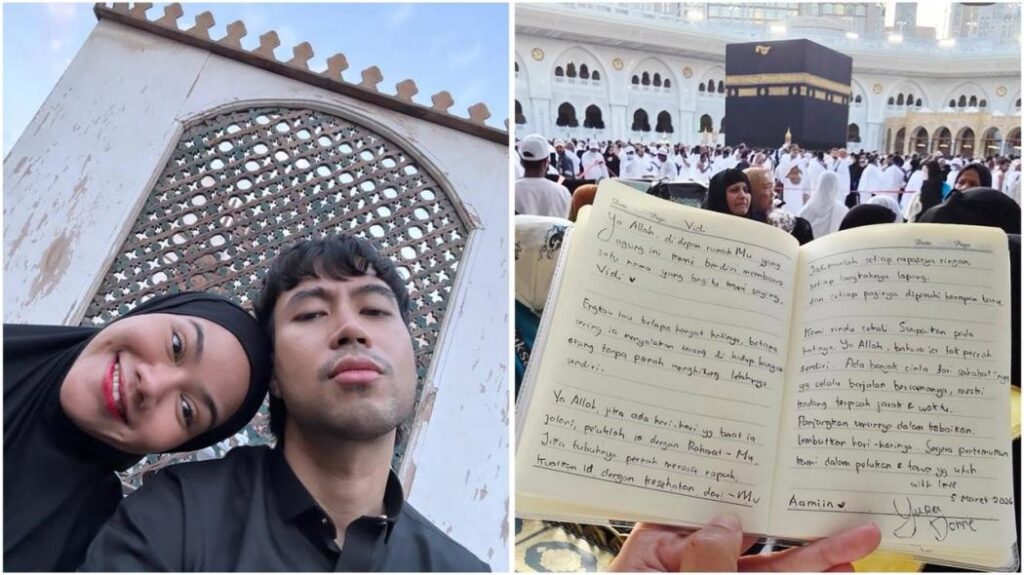 Date Page Vid
Ya Allah, di depan rumah Mu yang
agung ini kami berdiri membawa
satu nama yang begitu kami sayang,
Vidi
Engkau tau betapa hangat hatinya, betapa
sering ia menyalakan terang di hidup
orang tanpa pernah menghitung lelahnya
sendiri.
Ya Allah, jika ada hari-hari yg berat ia
jalani, peluklah ia dengan Rahmat-Mu.
Jika tubuhnya pernah merasa rapuh,
Kuatkan Id dengan kesehatan dari-Mu
Date Page
Jadikanlah setiap napasnya ringan,
setiap langkahnya lapang,
dan setiap paginya dipenuhi harapan baru.
Kami rindu sekali. Sampaikan pada
hatinya, Ya Allah, bahwa ia tak pernah
sendiri. Ada banyak cinta dar sahabat"nya
yg selalu berjalan bersamanya, meski
kadang terpisah jarak & waktu.
Panjangkan umurnya dalam kebaikan,
lembutkan hari-harinya. Segera pertemukan
kami dalam pelukan & tawa yg utuh
with love
5 Maret 2026
Aamiin